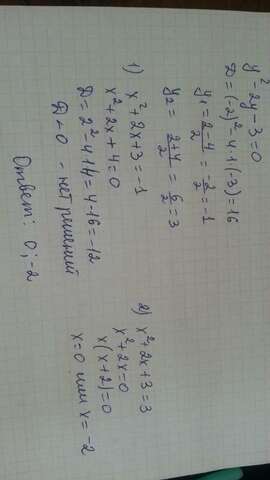 y² - 2y - 3 = 0
D = (-2)² - 4·1·(-3) = 16
y₁ = (2-4)/2 = -2/2 = -1
y₂ = (2+4)/2 = 6/2 = 3
1) x² + 2x + 3 = -1
x² + 2x + 4 = 0
D = 2² - 4·1·4 = 4 - 16 = -12
D < 0 - нет решений
2) x² + 2x + 3 = 3
x² + 2x = 0
x(x+2) = 0
x = 0 или x = -2
Ответ: 0; -2